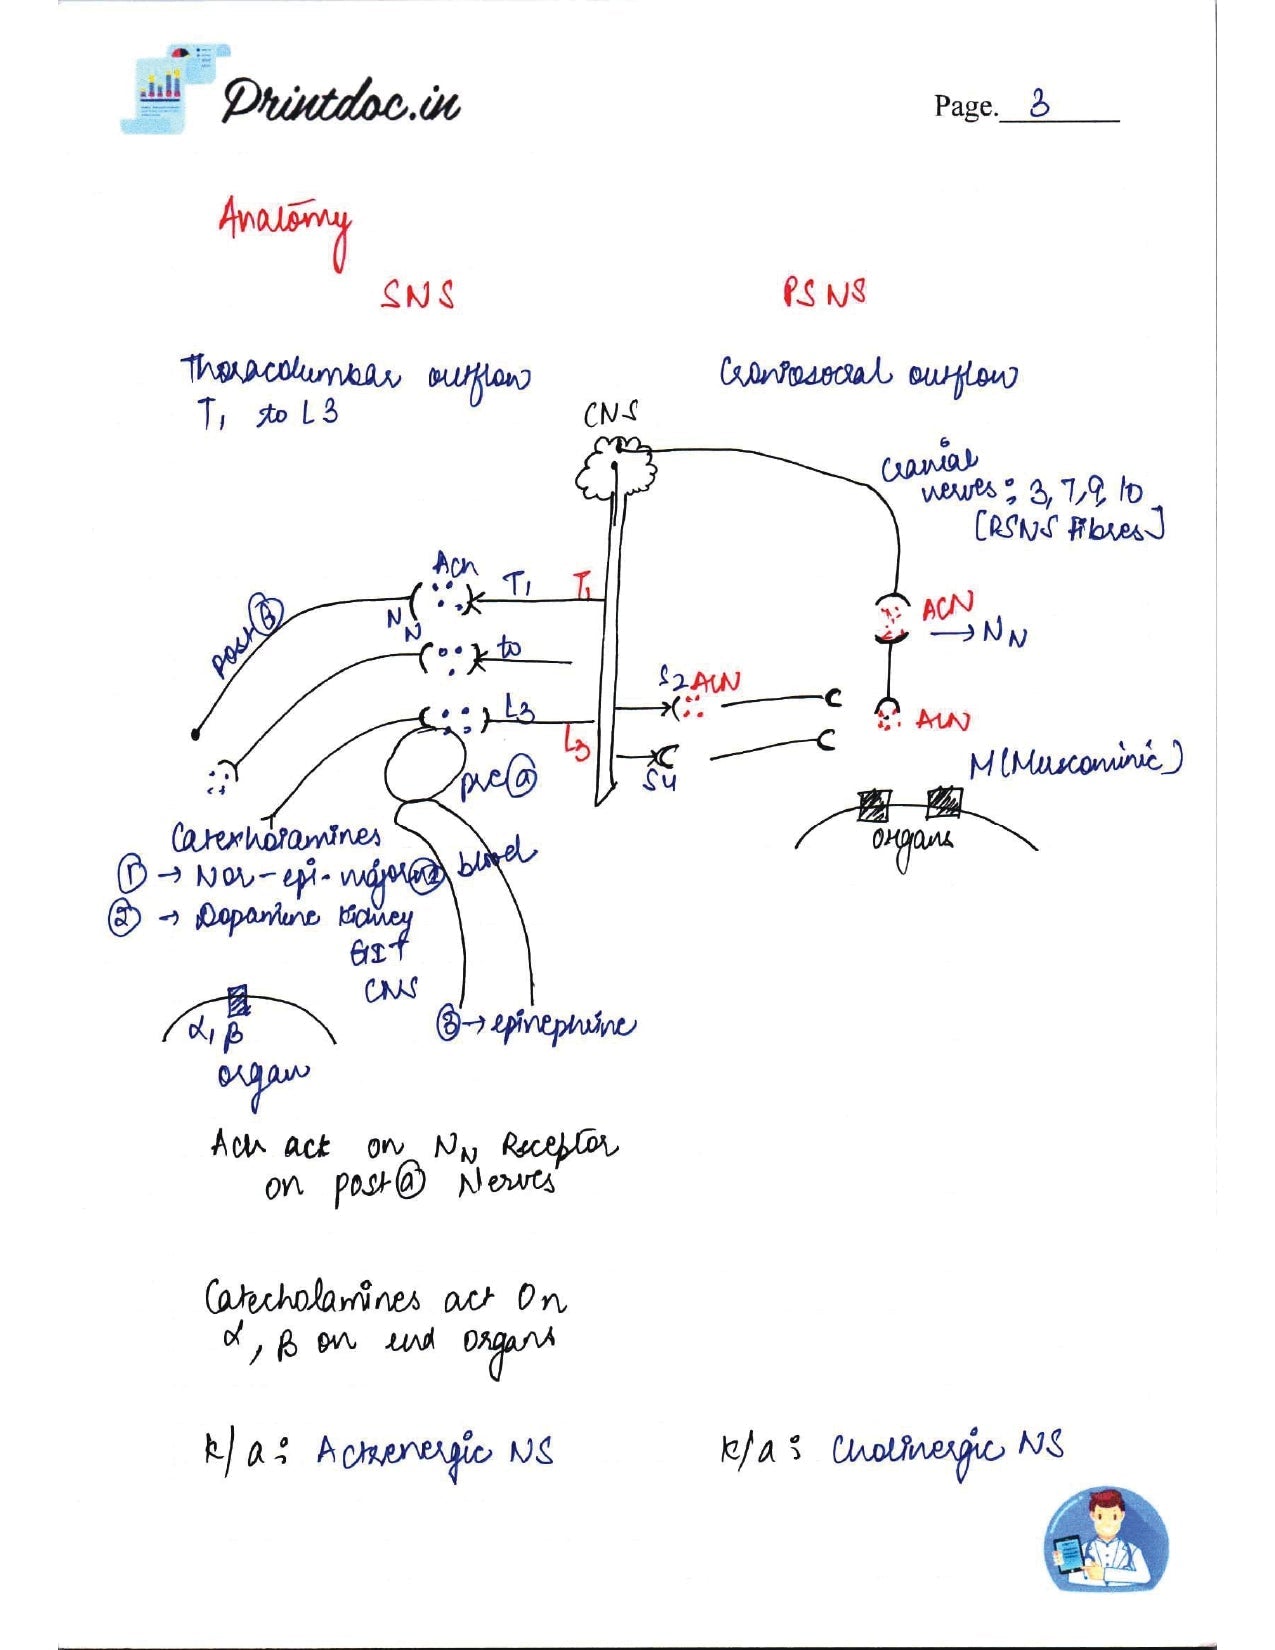 Printdoc.in
Page. 3
Anatomy
SNS
PSNS
Thoracolumbar outflow
T1 to L3
Craniosocral outflow
CNS
Cranial
nerves: 3, 7, 9, 10
[PSNS Fibres]
Ach
T1
T1
N
N
to
L3
L3
post
ACN
→ NN
S2 ACN
S4
ACN
M (Muscarinic)
organs
pre
Catecholamines
① → Nor-epi-major
blood
② → Dopamine Kidney
GIT
CNS
③ → epinephrine
α, β
organ
Ach act on NN Receptor
on post Nerves
Catecholamines act On
α, β on end organs
k/a: Adrenergic NS
k/a: Cholinergic NS